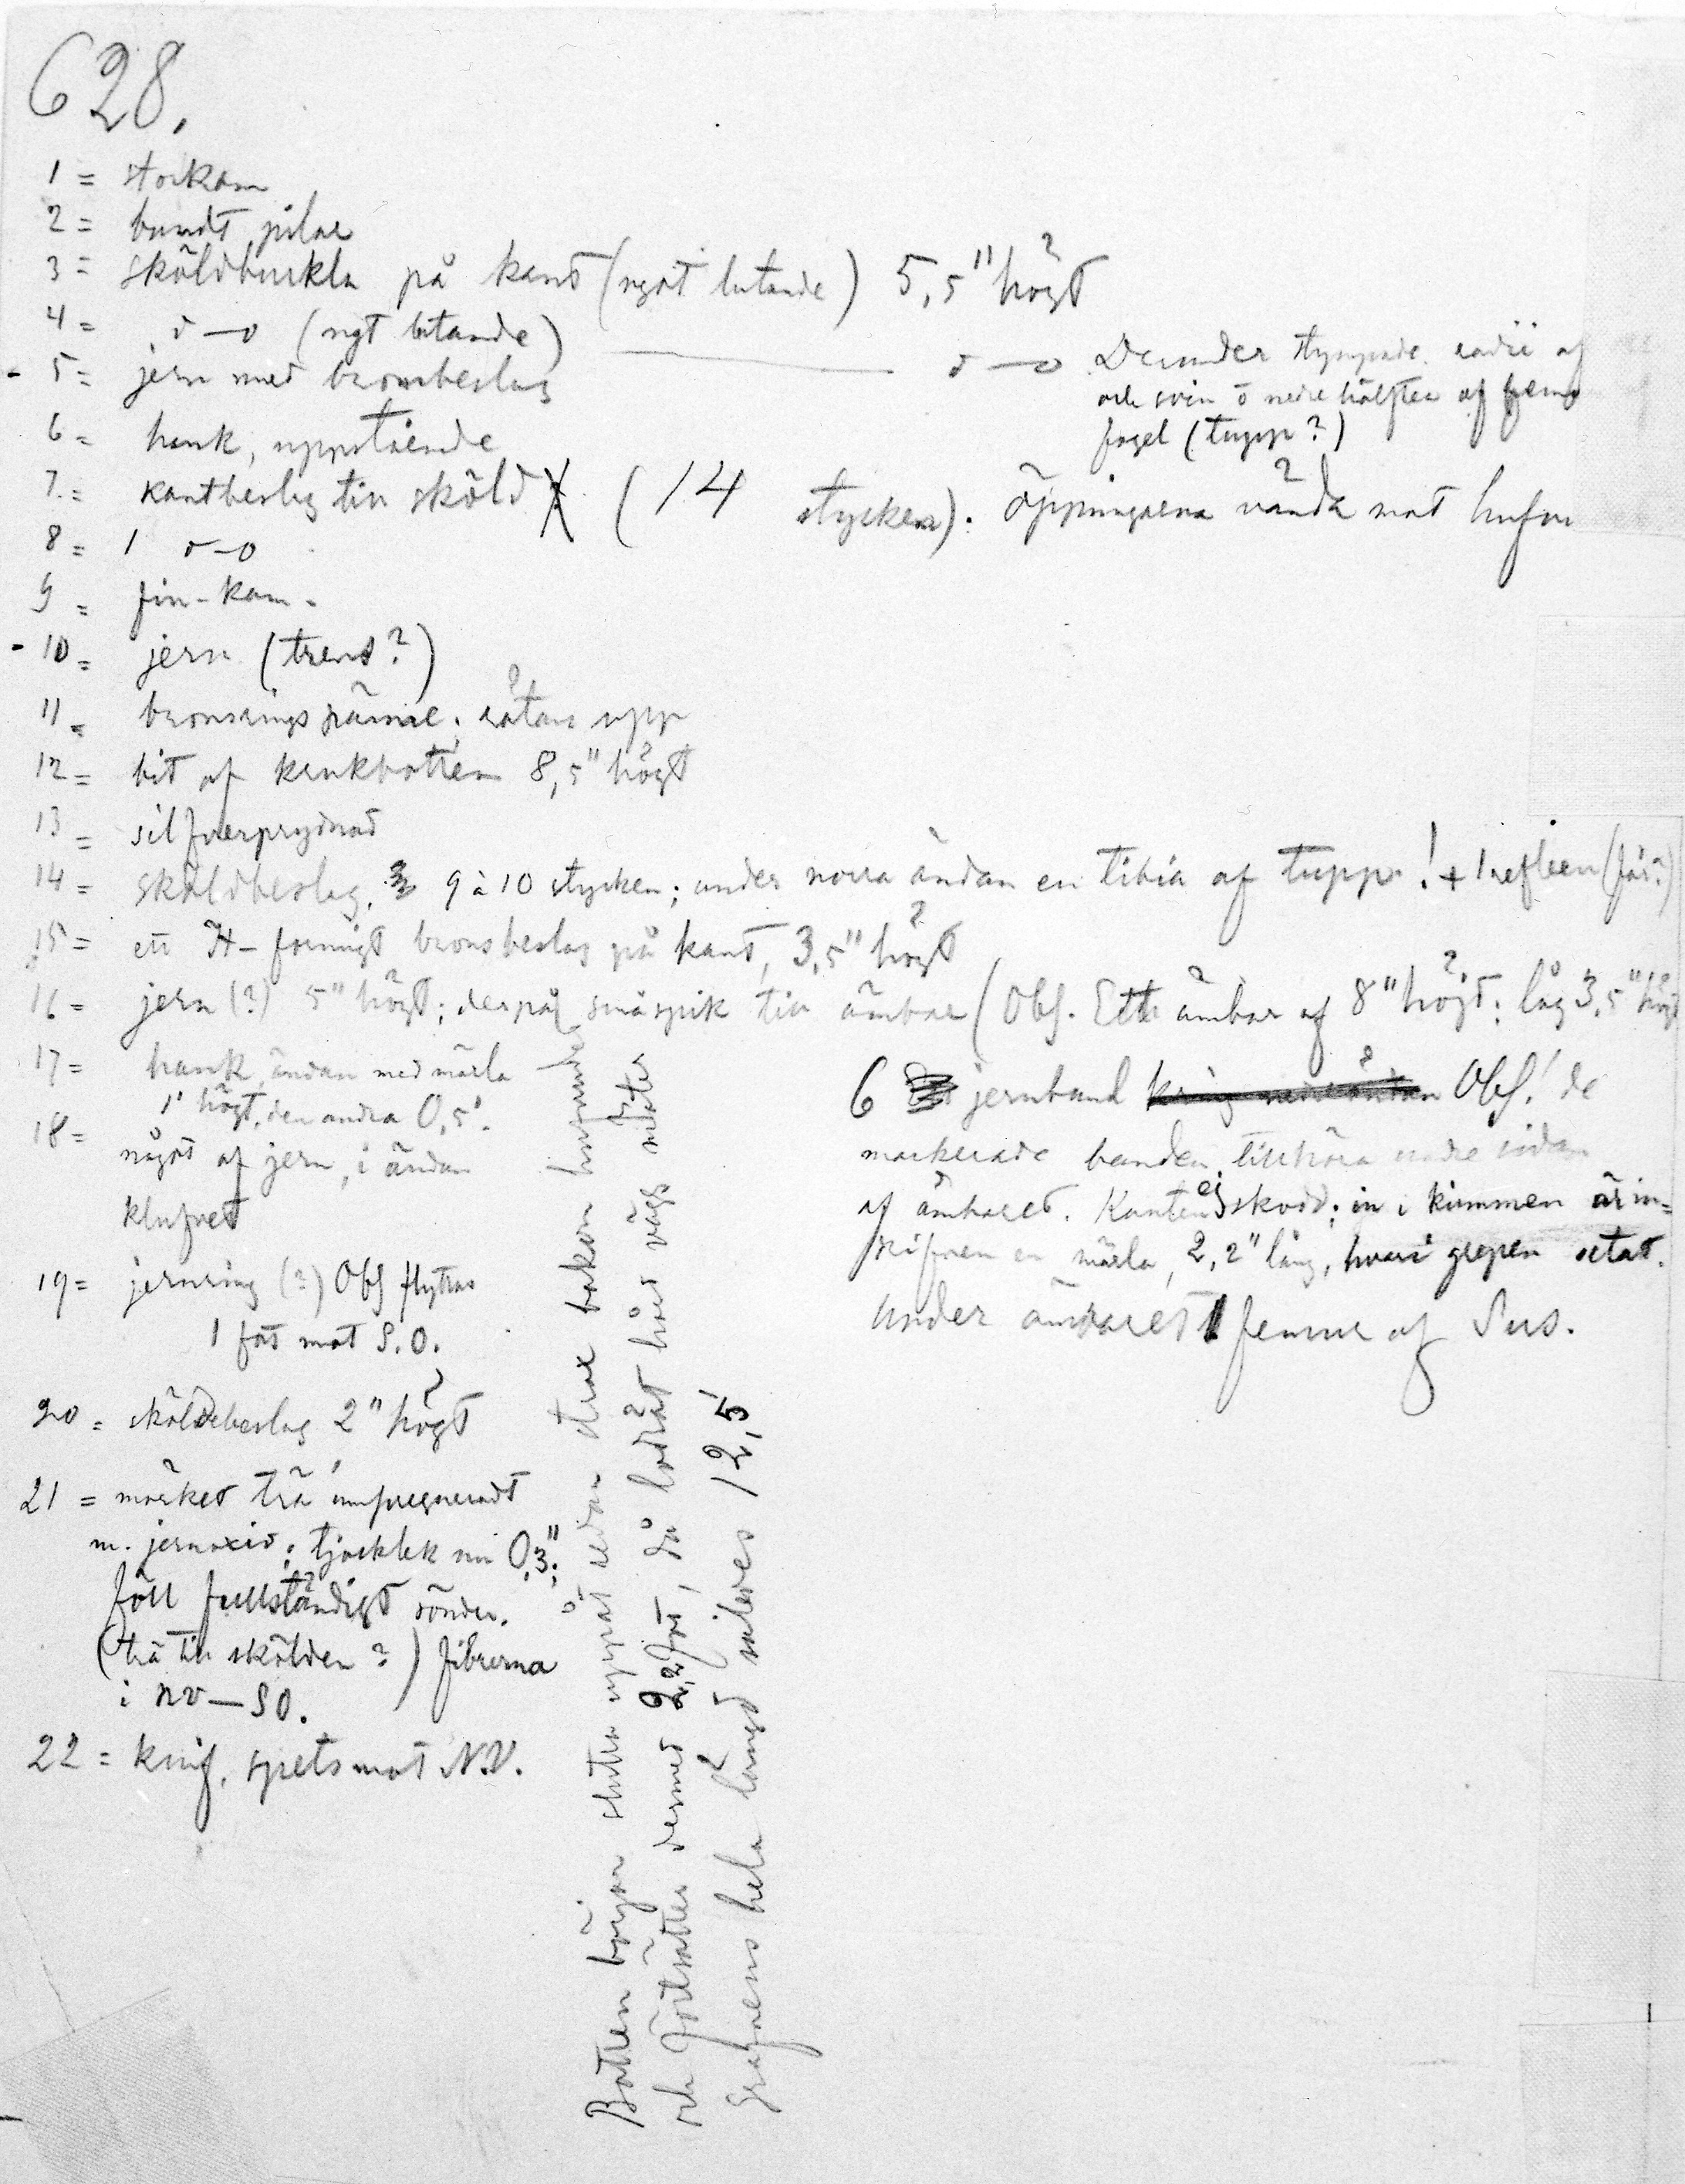 628.
1 = storkam
2 = bundt pilar
3 = sköldbuckla på kant (ngåt lutande) 5,5" högt
4 = d—o (ngt lutande) d—o Derunder
- 5 = jern med bronsbeslag och svin o nedre hälften af
6 = hank, uppstående fogel (tupp?)
7. = kantbeslag till sköld (14 stycken). Öppningarna vända mot hufvu
8 = 1 d-o
9 = fin-kam.
- 10 = jern (trens?)
11 = bronsrings upp
12 = bit af krukbotten 8,5" högt
13 = silfverprydnad
14 = sköldbeslag, 9 à 10 stycken; under norra ändan en tibia af tupp! + 1 refben (får?)
15 = ett H-formigt bronsbeslag på kant, 3,5" högt
16 = jern (?) 5" högt; derpå småspik till ämbar (Obs. Ett ämbar af 8" högt; låg 3,5" högt
17 = hank, ändan med märla
1' högt, den andra 0,5'.
18 = något af jern, i ändan
klufvet
19 = jernring (?) Obs flyttas
1 fot mot S.O.
20 = sköldbeslag 2" högt
21 = mörket trä impregneradt
m. jernoxid; tjocklek nu 0,3";
föll fullständigt sönder.
(trä till skölden?) fibrerna
i NV—SO.
22 = knif, spets mot N.V.
6 jernband Obs! de
markerade banden tillhöra nedre sidan
af ämbaret. Kanten ej skodd; in i kimmen är in=
drifven en märla, 2,2" lång, hvari grepen setat.
Under ämbaret 1 femur af Sus.
Botten börjar slutta uppåt redan strax bakom hufvudet
och fortsätter dermed 2,2 fot, då lodrät hård vägg möter
Grafvens hela längd således 12,5'